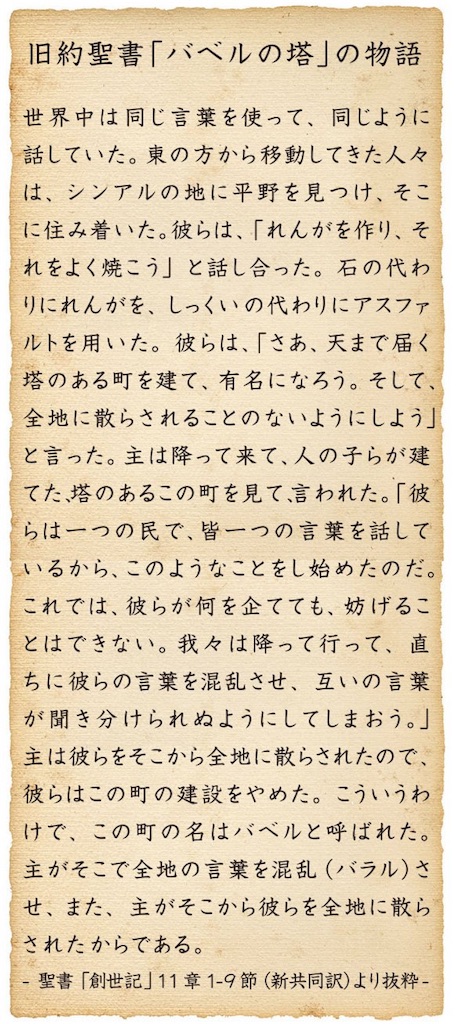 旧約聖書「バベルの塔」の物語
世界中は同じ言葉を使って、同じように
話していた。東の方から移動してきた人々
は、シンアルの地に平野を見つけ、そこ
に住み着いた。彼らは、「れんがを作り、そ
れをよく焼こう」と話し合った。石の代わ
りにれんがを、しっくいの代わりにアスファ
ルトを用いた。彼らは、「さあ、天まで届く
塔のある町を建て、有名になろう。そして、
全地に散らされることのないようにしよう」
と言った。主は降って来て、人の子らが建
てた、塔のあるこの町を見て、言われた。「彼
らは一つの民で、皆一つの言葉を話して
いるから、このようなことをし始めたのだ。
これでは、彼らが何を企てても、妨げるこ
とはできない。我々は降って行って、直
ちに彼らの言葉を混乱させ、互いの言葉
が聞き分けられぬようにしてしまおう。」
主は彼らをそこから全地に散らされたので、
彼らはこの町の建設をやめた。こういうわ
けで、この町の名はバベルと呼ばれた。
主がそこで全地の言葉を混乱(バラル)さ
せ、また、主がそこから彼らを全地に散ら
されたからである。
- 聖書「創世記」11章1-9節(新共同訳)より抜粋-